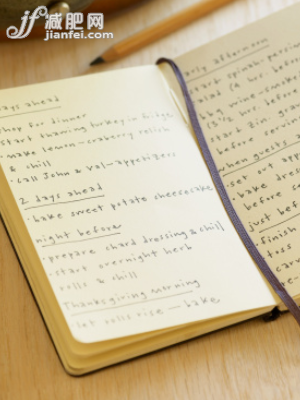 jf 减肥网
jianfei.com
days ahead
shop for dinner
start thawing turkey in fridge
make lemon-cranberry relish
& chill
· call John & Val - appetizers
2 days ahead
· bake sweet potato cheesecake
night before
· prepare chard dressing & chill
· start overnight herb
rolls & chill
Thanksgiving morning
let rolls rise — bake
early afternoon
start spinach-persim
salad (4 hrs. before
bkg wine-smoke
(3 1/2 hrs. before
start zin. gra
before servin
when guests
· set out app
· bake dress
before s
just bef
· finish
· toss
· carv